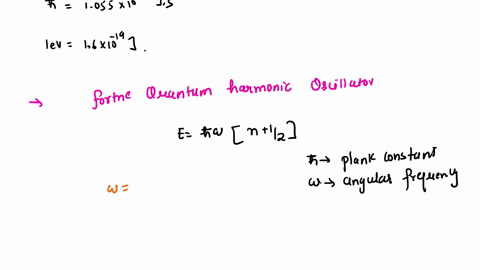 ħ = 1.055 × 10 J.s
1ev = 1.6 × 10⁻¹⁹ J.
→ for the Quantum harmonic Oscillator
E = ħω [n + 1/2]
ħ → plank constant
ω → angular frequeny
ω =